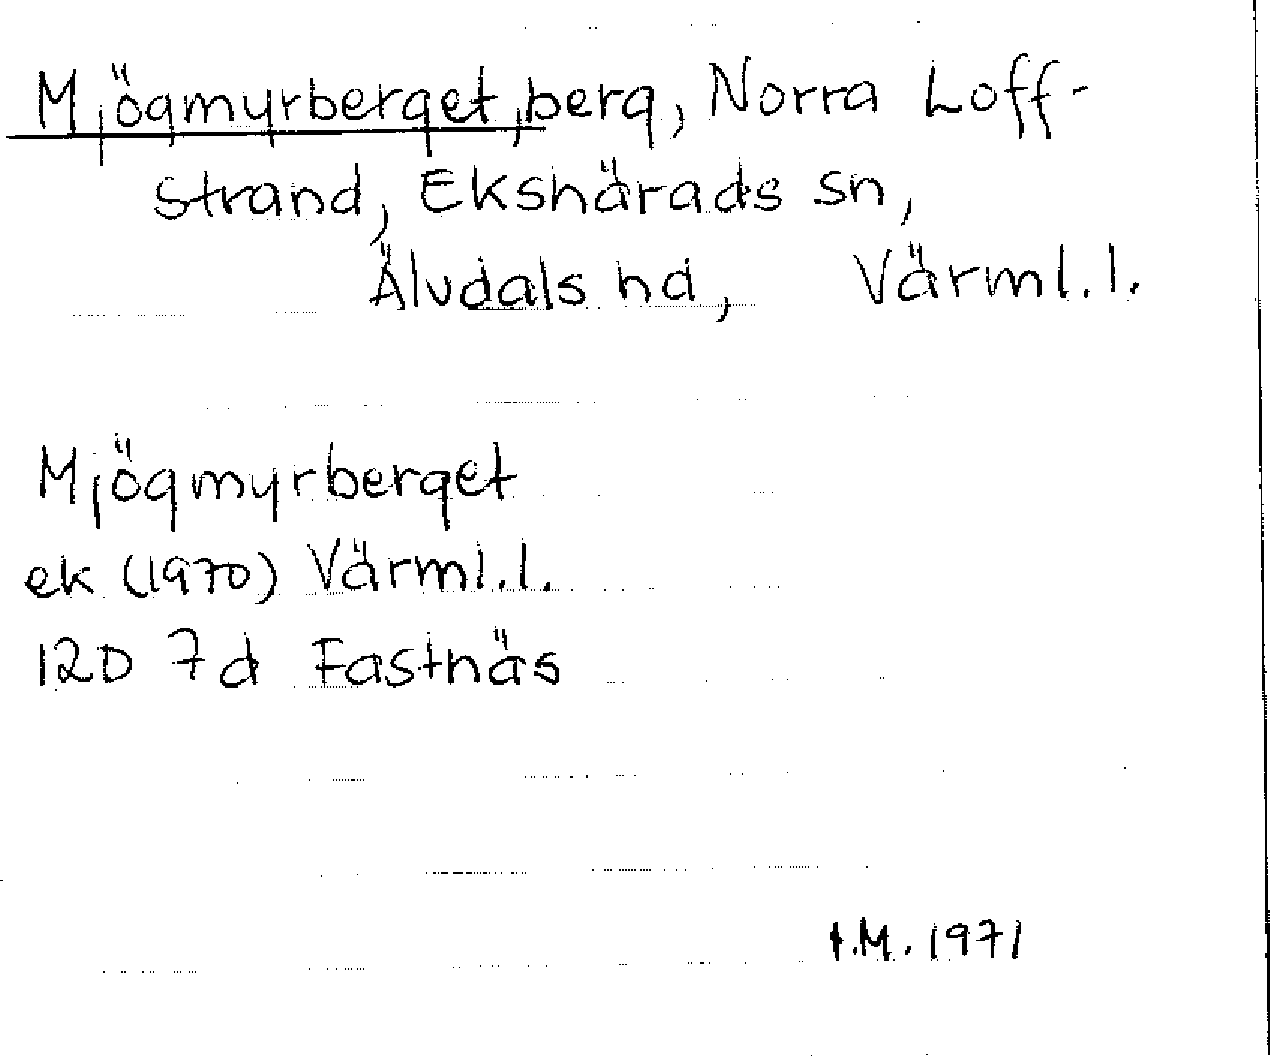 Mjögmyrberget, berg, Norra Loff-
strand, Ekshärads sn,
Älvdals hd, Värml. l.
Mjögmyrberget
ek (1970) Värml. l.
12D 7d Fastnäs
I.M. 1971